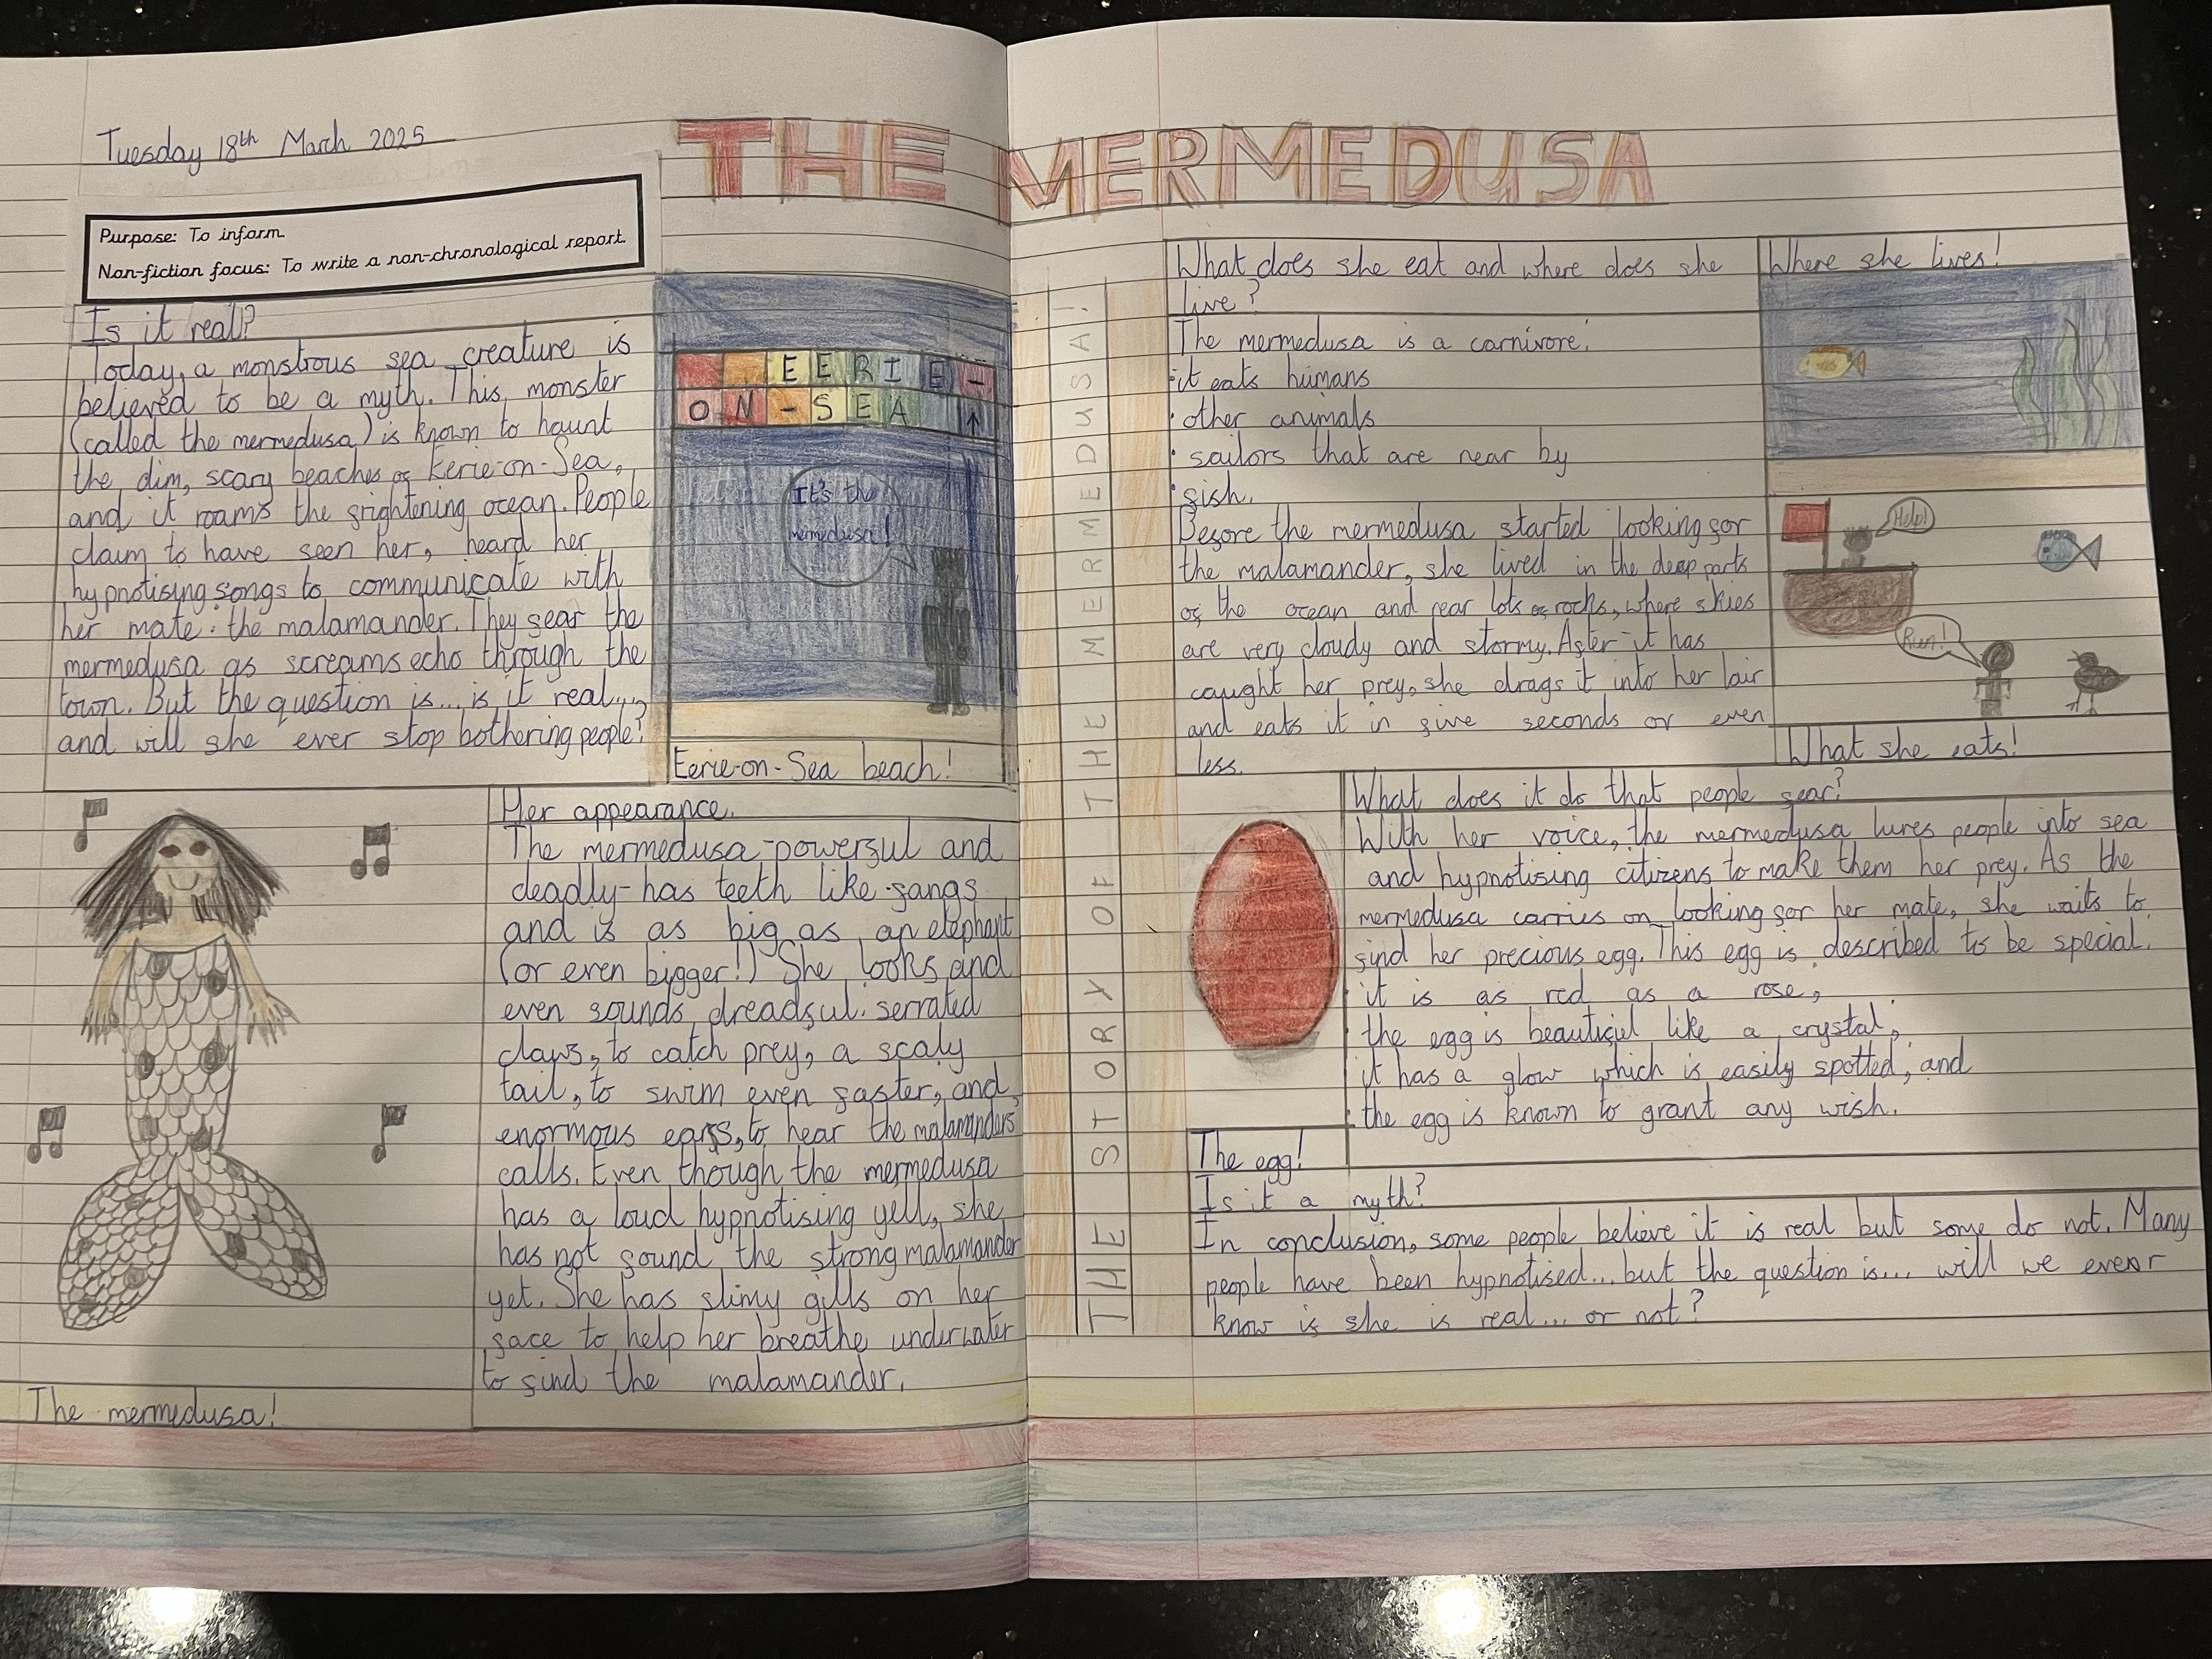 Tuesday 18th March 2025
THE MERMEDUSA
Purpose: To inform.
Non-fiction focus: To write a non-chronological report.
Is it real?
Today, a monstrous sea creature is
believed to be a myth. This monster
(called the mermedusa) is known to haunt
the dim, scary beaches of Eerie-on-Sea,
and it roams the frightening ocean. People
claim to have seen her, heard her
hypnotising songs to communicate with
her mate: the malamander. They fear the
mermedusa as screams echo through the
town. But the question is... is it real....,
and will she ever stop bothering people?
EERIE-
ON-SEA ↑
It's the
mermedusa!
Eerie-on-Sea beach!
Her appearance.
The mermedusa-powerful and
deadly-has teeth like fangs
and is as big as an elephant
(or even bigger!) She looks and
even sounds dreadful: serrated
claws, to catch prey, a scaly
tail, to swim even faster, and,
enormous ears, to hear the malamanders
calls. Even though the mermedusa
has a loud hypnotising yell, she
has not found the strong malamander
yet. She has slimy gills on her
face to help her breathe underwater
to find the malamander.
The mermedusa!
THE STORY OF THE MERMEDUSA!
What does she eat and where does she
live?
The mermedusa is a carnivore:
·it eats humans
· other animals
· sailors that are near by
· fish.
Before the mermedusa started looking for
the malamander, she lived in the deap parts
of the ocean and near lots of rocks, where skies
are very cloudy and stormy. After it has
caught her prey, she drags it into her lair
and eats it in five seconds or even
less.
Where she lives!
Help!
Run!
What she eats!
What does it do that people fear?
With her voice, the mermedusa lures people into sea
and hypnotising citizens to make them her prey. As the
mermedusa carries on looking for her mate, she waits to
find her precious egg. This egg is described to be special.
· it is as red as a rose,
· the egg is beautiful like a crystal;
· it has a glow which is easily spotted; and
· the egg is known to grant any wish.
The egg!
Is it a myth?
In conclusion, some people believe it is real but some do not. Many
people have been hypnotised... but the question is... will we ever
know if she is real... or not?